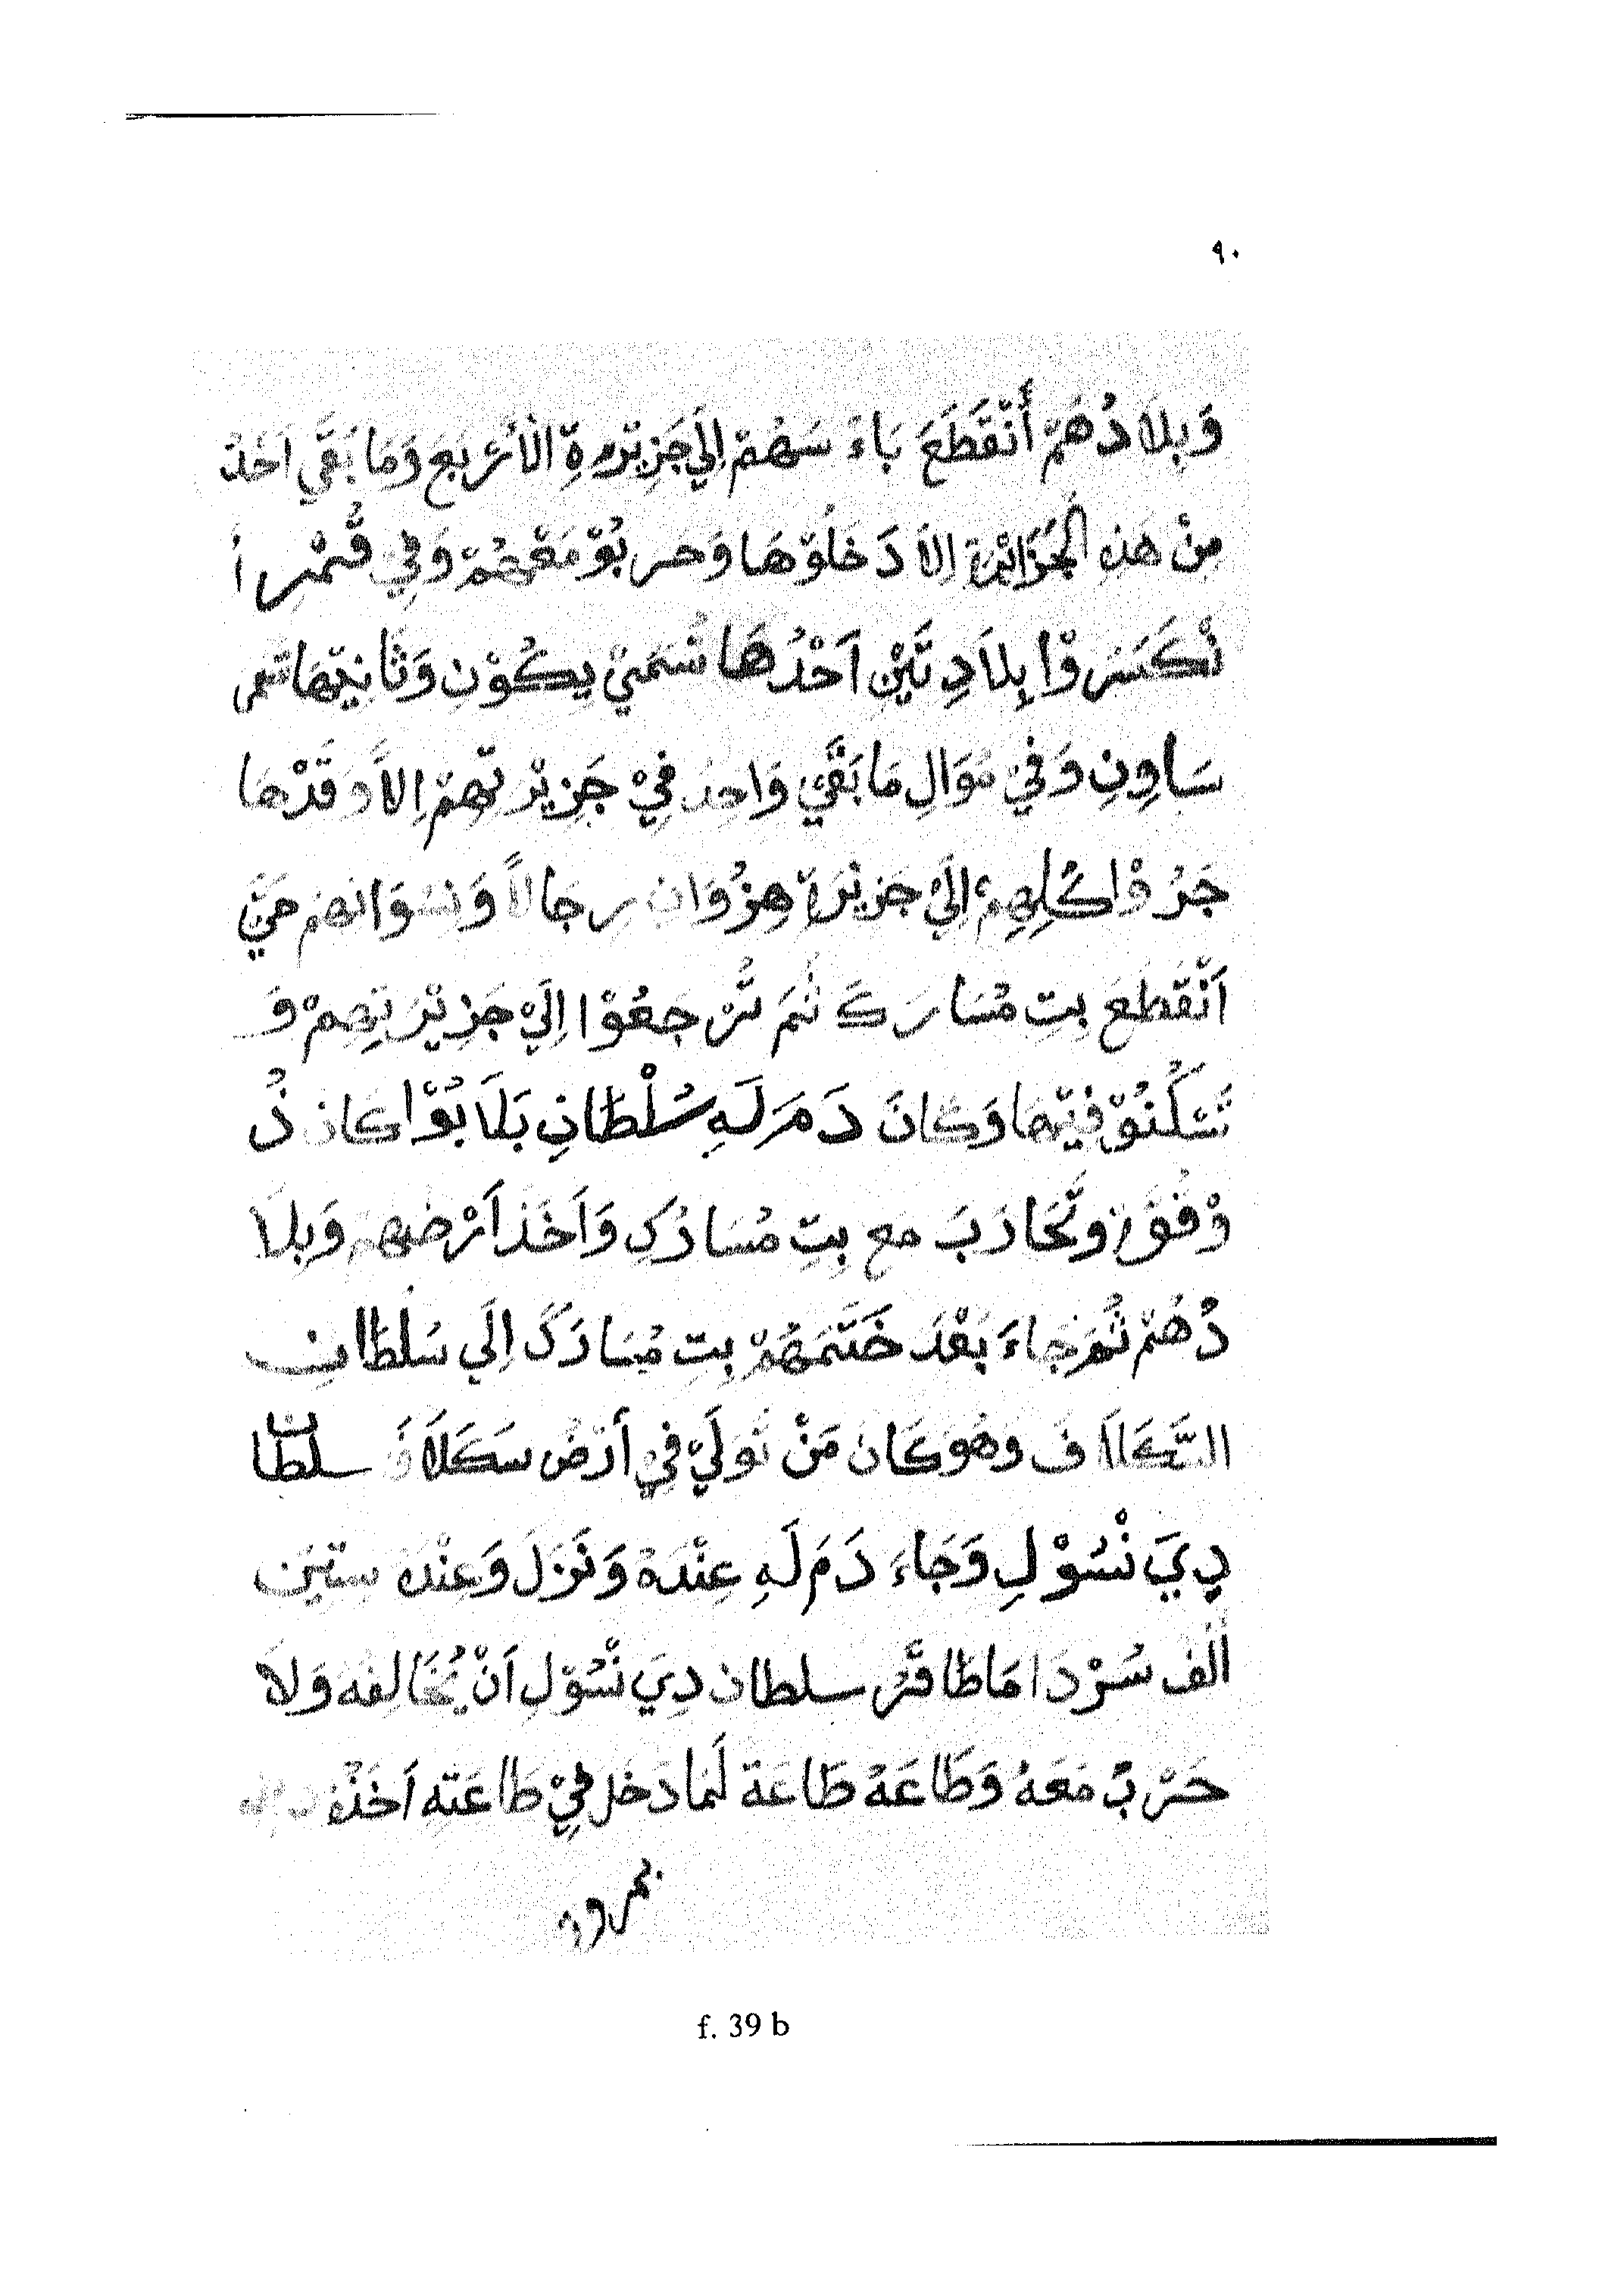 ٩٠
وَبِلَادُهُمْ أَنْقَطَعَ بَاءَ سَهُمْ اِلَي جَزِيْرَةِ الْأَرْبَعَ وَمَا بَقَّي اَحَدْ
مِنْ هَذِهِ الْجَزَائِرَة اِلاَ دَخَلُوْهَا وَحربُوْ مَعْهُمْ وَفِي قُمْرِ أَ
نْكَسَرُوْا بِلاَدِتَيْنِ اَحْدُهَا تُسَمَيْ يِكُوْنِ وَثَانِيْهَا تَسَمى
سَاوِنِ وَفِيْ مُوَالِ مَا بَقَّيْ وَاحِدُ فِيْ جَزِيْرتهِمْ اِلاَّ وَقَدْهَا
جَرُوْا كُلِهِمْ اِلَيْ جَزِيْرَةِ هِنْزُوَانِ رِجَالاً وَنِسْوَانهُمْ حَتَّيْ
اَنْقَطَعَ بِتِ مُسَارَكَ ثُمَ تُرْجَعُوْا اِلَيْ جَزِيْرَتِهِمْ وَ
تَسْكُنُوْ فِيْهَا وَكَانَ دَمَرَلَهِ سُلْطَانِ بَلَابُوْا كَانَ ذُ
وْفُقَرْ وتَّحَارَبَ مَع بِتِ مُسَارَكِ وَاَخَذَ اَرْضهم وَبِلَا
دُهُمْ ثُمَ جَاءَ بَعْدَ خَتَمَهُمْ بِتِ مُسَارَكَ اِلَي سُلْطَانِ
السَّكَلَاَفَ وَهُوَ كَانَ مَنْ تُوَلَيّ فِي أَرْضُ سَكَلَاَفَ سلطان
دِيَ نْسُوْلِ وَجَاءَ دَمَرلَهِ عِنْدَهُ وَنَزَلَ وَعِنْدَهُ سِتِيْن
اَلْف سُرْدَا مَا طَاقَهُ سلطان دِيَ نْسُوْلِ اَنْ يُخَالِفَهُ وَلَا
حَرْبٌ مَعَهُ وَطَاعَهُ طَاعَة لَمَا دَخَلَ فِيْ طَاعَتِهِ اَخَذْهُ
f. 39 b